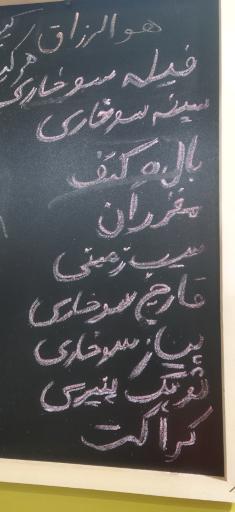 هوالرزاق
فیله سوخاری
سینه سوخاری
بال و کتف
مغز ران
سیب زمینی
قارچ سوخاری
پیاز سوخاری
پنیری
کراکت